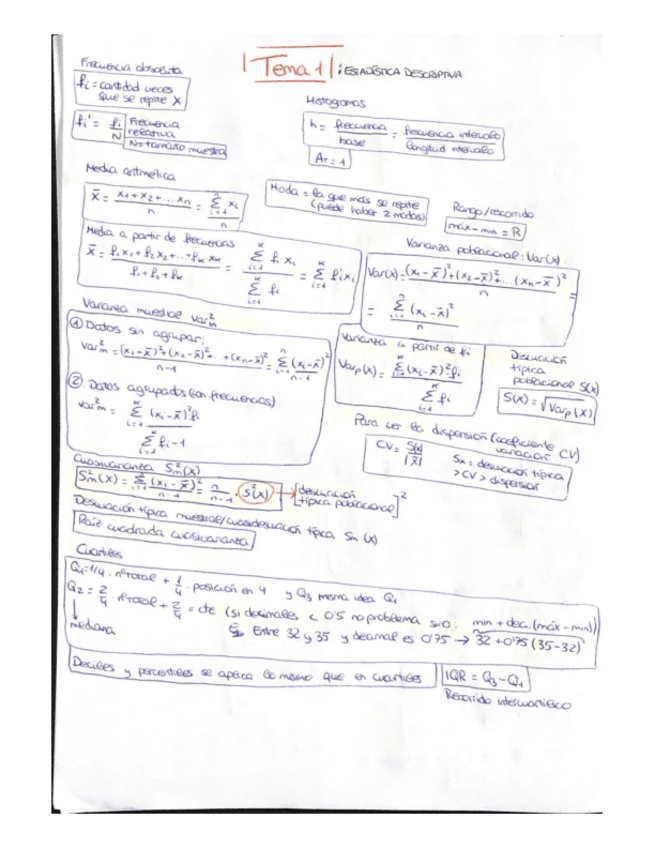 Tema 1 : ESTADÍSTICA DESCRIPTIVA
Frecuencia absoluta
fi = cantidad veces
que se repite X
fi' = fi/N Frecuencia
relativa
N = tamaño muestra
Histogramas
h = frecuencia/base = frecuencia intervalo/longitud intervalo
AT = 1
Media aritmética
X̄ = (x1 + x2 + ... xn)/n = Σ(i=1, n) xi / n
Moda = la que más se repite
(puede haber 2 modas)
Rango/recorrido
máx - min = R
Media a partir de frecuencias
X̄ = (f1 x1 + f2 x2 + ... + fk xk)/(f1 + f2 + fk) = Σ(i=1, k) f · xi / Σ(i=1, k) fi = Σ(i=1, k) fi xi
Varianza poblacional: Var(x)
Var(x) = ((x1 - x̄)² + (x2 - x̄)² + ... (xn - x̄)²)/n =
= Σ(i=1, n) (xi - x̄)² / n
Varianza muestral var²m
① Datos sin agrupar:
var²m = ((x1 - x̄)² + (x2 - x̄)² + ... + (xn - x̄)²)/(n-1) = Σ(i=1, n) (xi - x̄)²/(n-1)
② Datos agrupados (con frecuencias)
var²m = Σ(i=1, k) (xi - x̄)² fi / Σ(i=1, k) fi - 1
Varianza a partir de fi
Varp(x) = Σ(i=1, k) (xi - x̄)² fi / Σ(i=1, k) fi
Desviación
típica
poblacional S(x)
S(x) = √Varp(x)
Para ver la dispersión (coeficiente
variación CV)
CV = S(x)/|x̄|
Sx = desviación típica
> CV > dispersión
Cuasivarianza S²m(x)
S²m(x) = Σ(i=1, n) (xi - x̄)²/(n-1) = n/(n-1) · S²(x) → [desviación
típica poblacional]²
Desviación típica muestral/cuasidesviación típica Sm(x)
Raíz cuadrada cuasivarianza
Cuartiles
Q1 = 1/4 · nº total + 1/4 · posición en 4 y Q3 misma idea Q1
Q2 = 2/4 · nº total + 2/4 = cte (si decimales < 0'5 no problema sino: min + dec. (máx - min))
↓
mediana
Ej Entre 32 y 35 y decimal es 0'75 → 32 + 0'75 (35 - 32)
Deciles y percentiles se aplica lo mismo que en cuartiles
IQR = Q3 - Q1
Recorrido intercuartílico